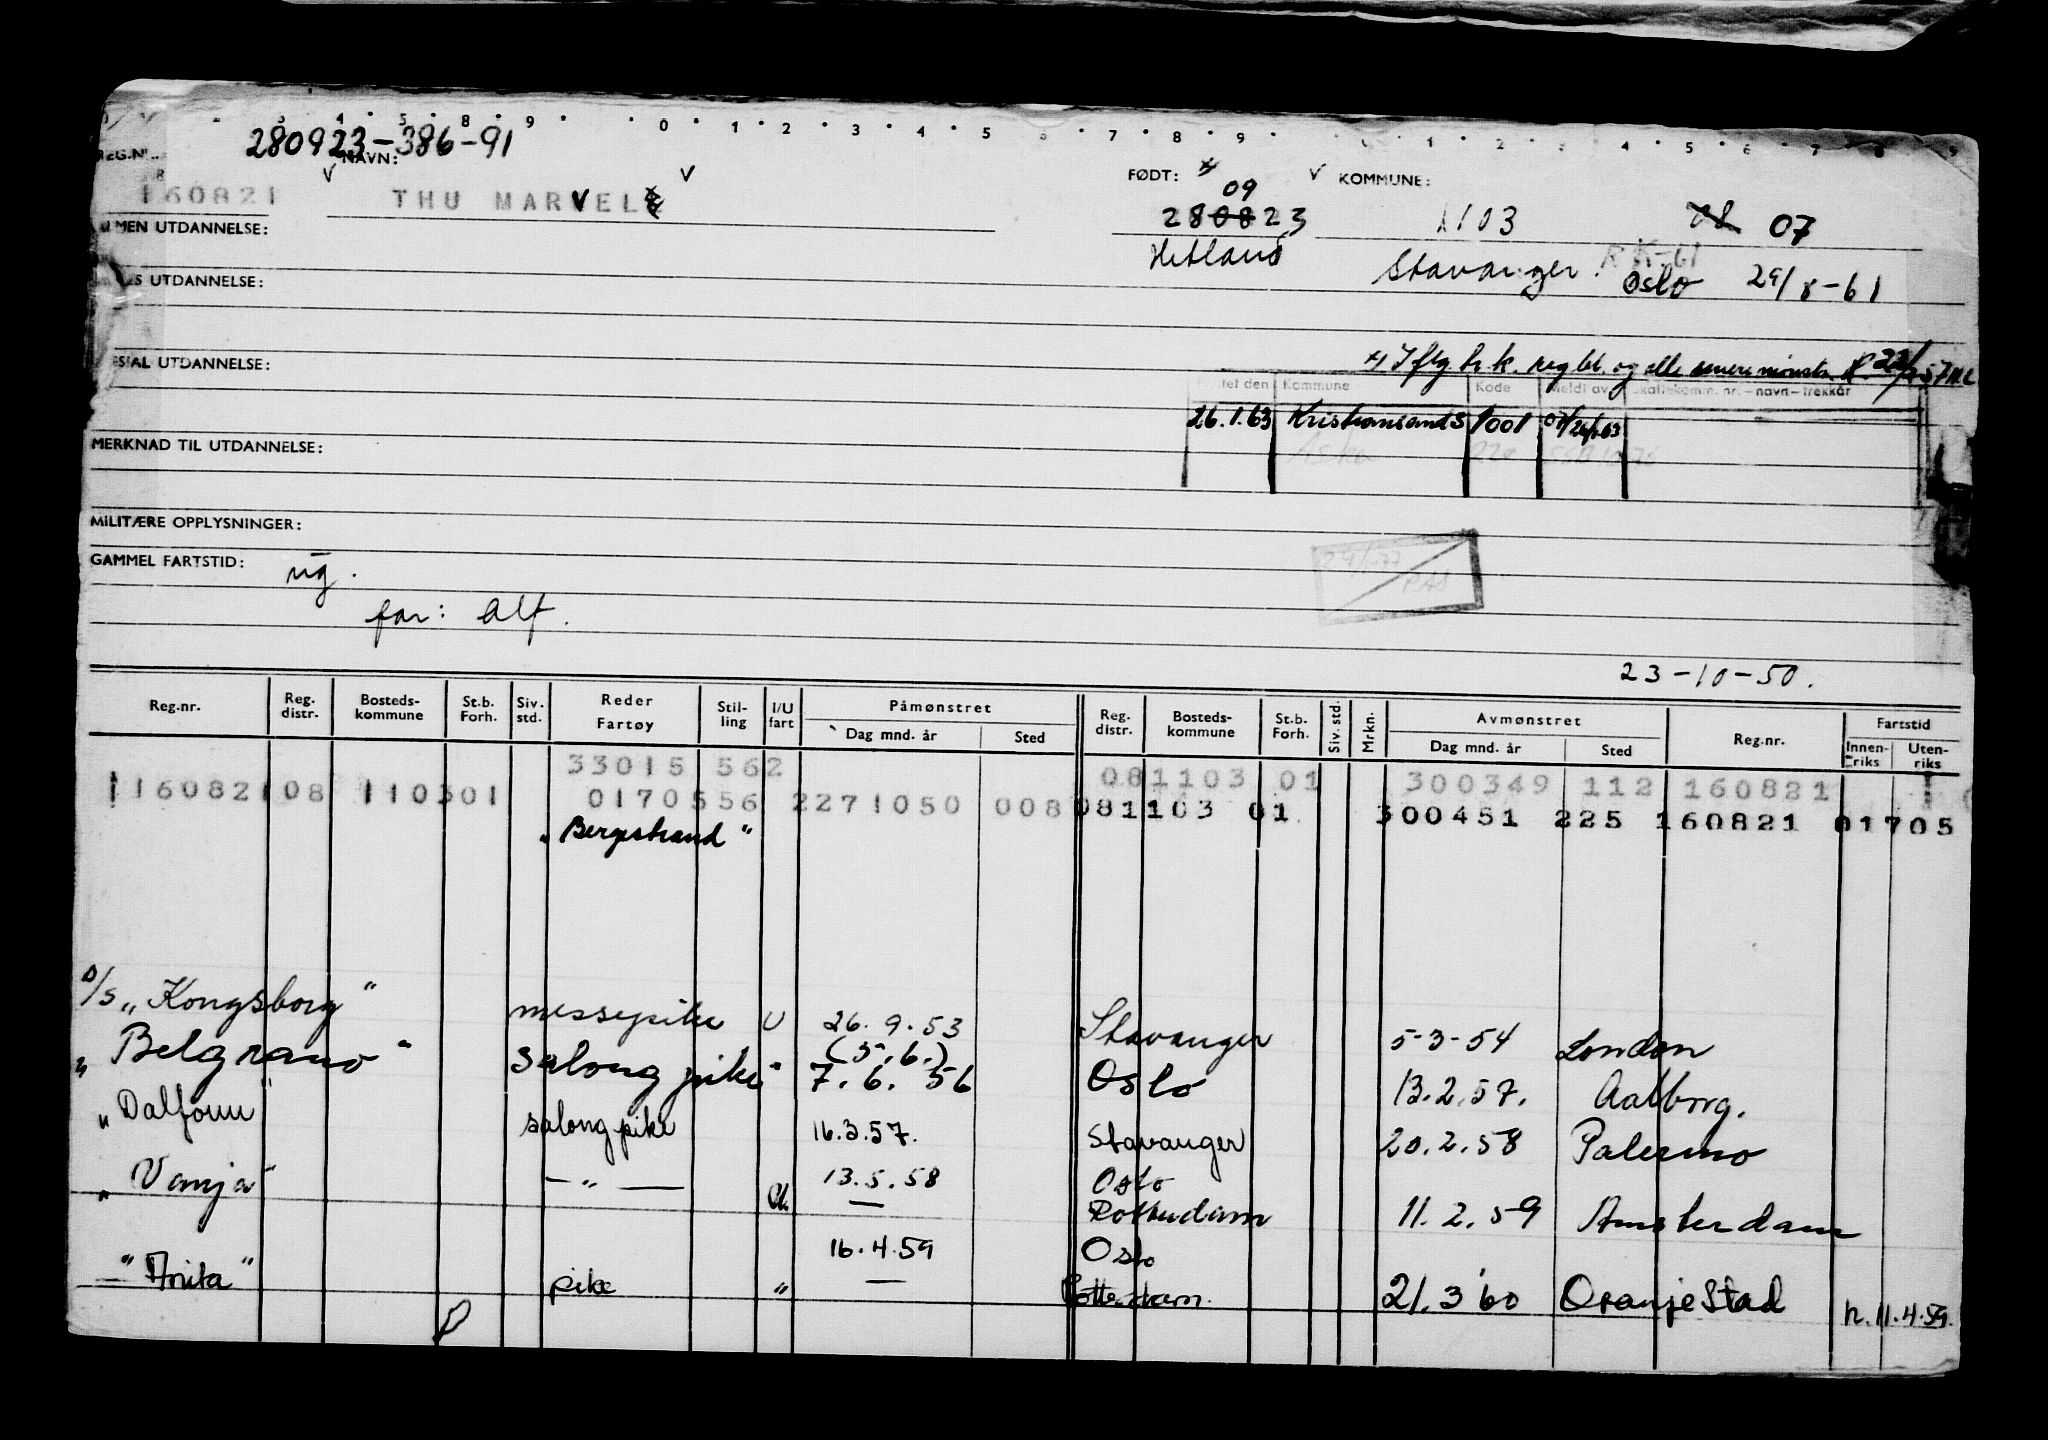 280923-386-91
REG.NR. NAVN: FØDT: KOMMUNE:
160821 THU MARVEL 28 08 23 09 1103 08 07
Hetland Stavanger. Oslo 29/8-61
RK-61
ALMEN UTDANNELSE:
UTDANNELSE:
SPESIAL UTDANNELSE:
Flyttet den Kommune Kode Meldt av Skattekomm. nr. – navn – trekkår
26.1.63 Kristiansand S 1001
MERKNAD TIL UTDANNELSE:
MILITÆRE OPPLYSNINGER:
GAMMEL FARTSTID: ug.
far: Alf.
23-10-50.
Reg.nr. Reg. distr. Bosteds-kommune St.b. Forh. Siv. std. Reder Fartøy Stil-ling I/U fart Påmønstret Dag mnd. år Sted Reg. distr. Bosteds-kommune St.b. Forh. Siv. std. Mrkn. Avmønstret Dag mnd. år Sted Reg.nr. Fartstid Innen-riks Uten-riks
33015 562 081103 01 300349 112 160821
116082108 110301 0170556 2271050 008 081103 01 300451 225 160821 01705
"Bergestrand"
D/S "Kongsborg" messepike U 26.9.53 Stavanger 5-3-54 London
(5.6.)
" Belgrano" salongpike " 7.6.56 Oslo 13.2.57. Aalborg.
" Dalfonn" salongpike 16.3.57. Stavanger 20.2.58 Palermo
" Vanja" — " — 13.5.58 Oslo
— Rotterdam 11.2.59 Amsterdam
16.4.59 Oslo
"Anita" pike " — Rotterdam. 21.3 60 OranjeStad h. 11.4.59.